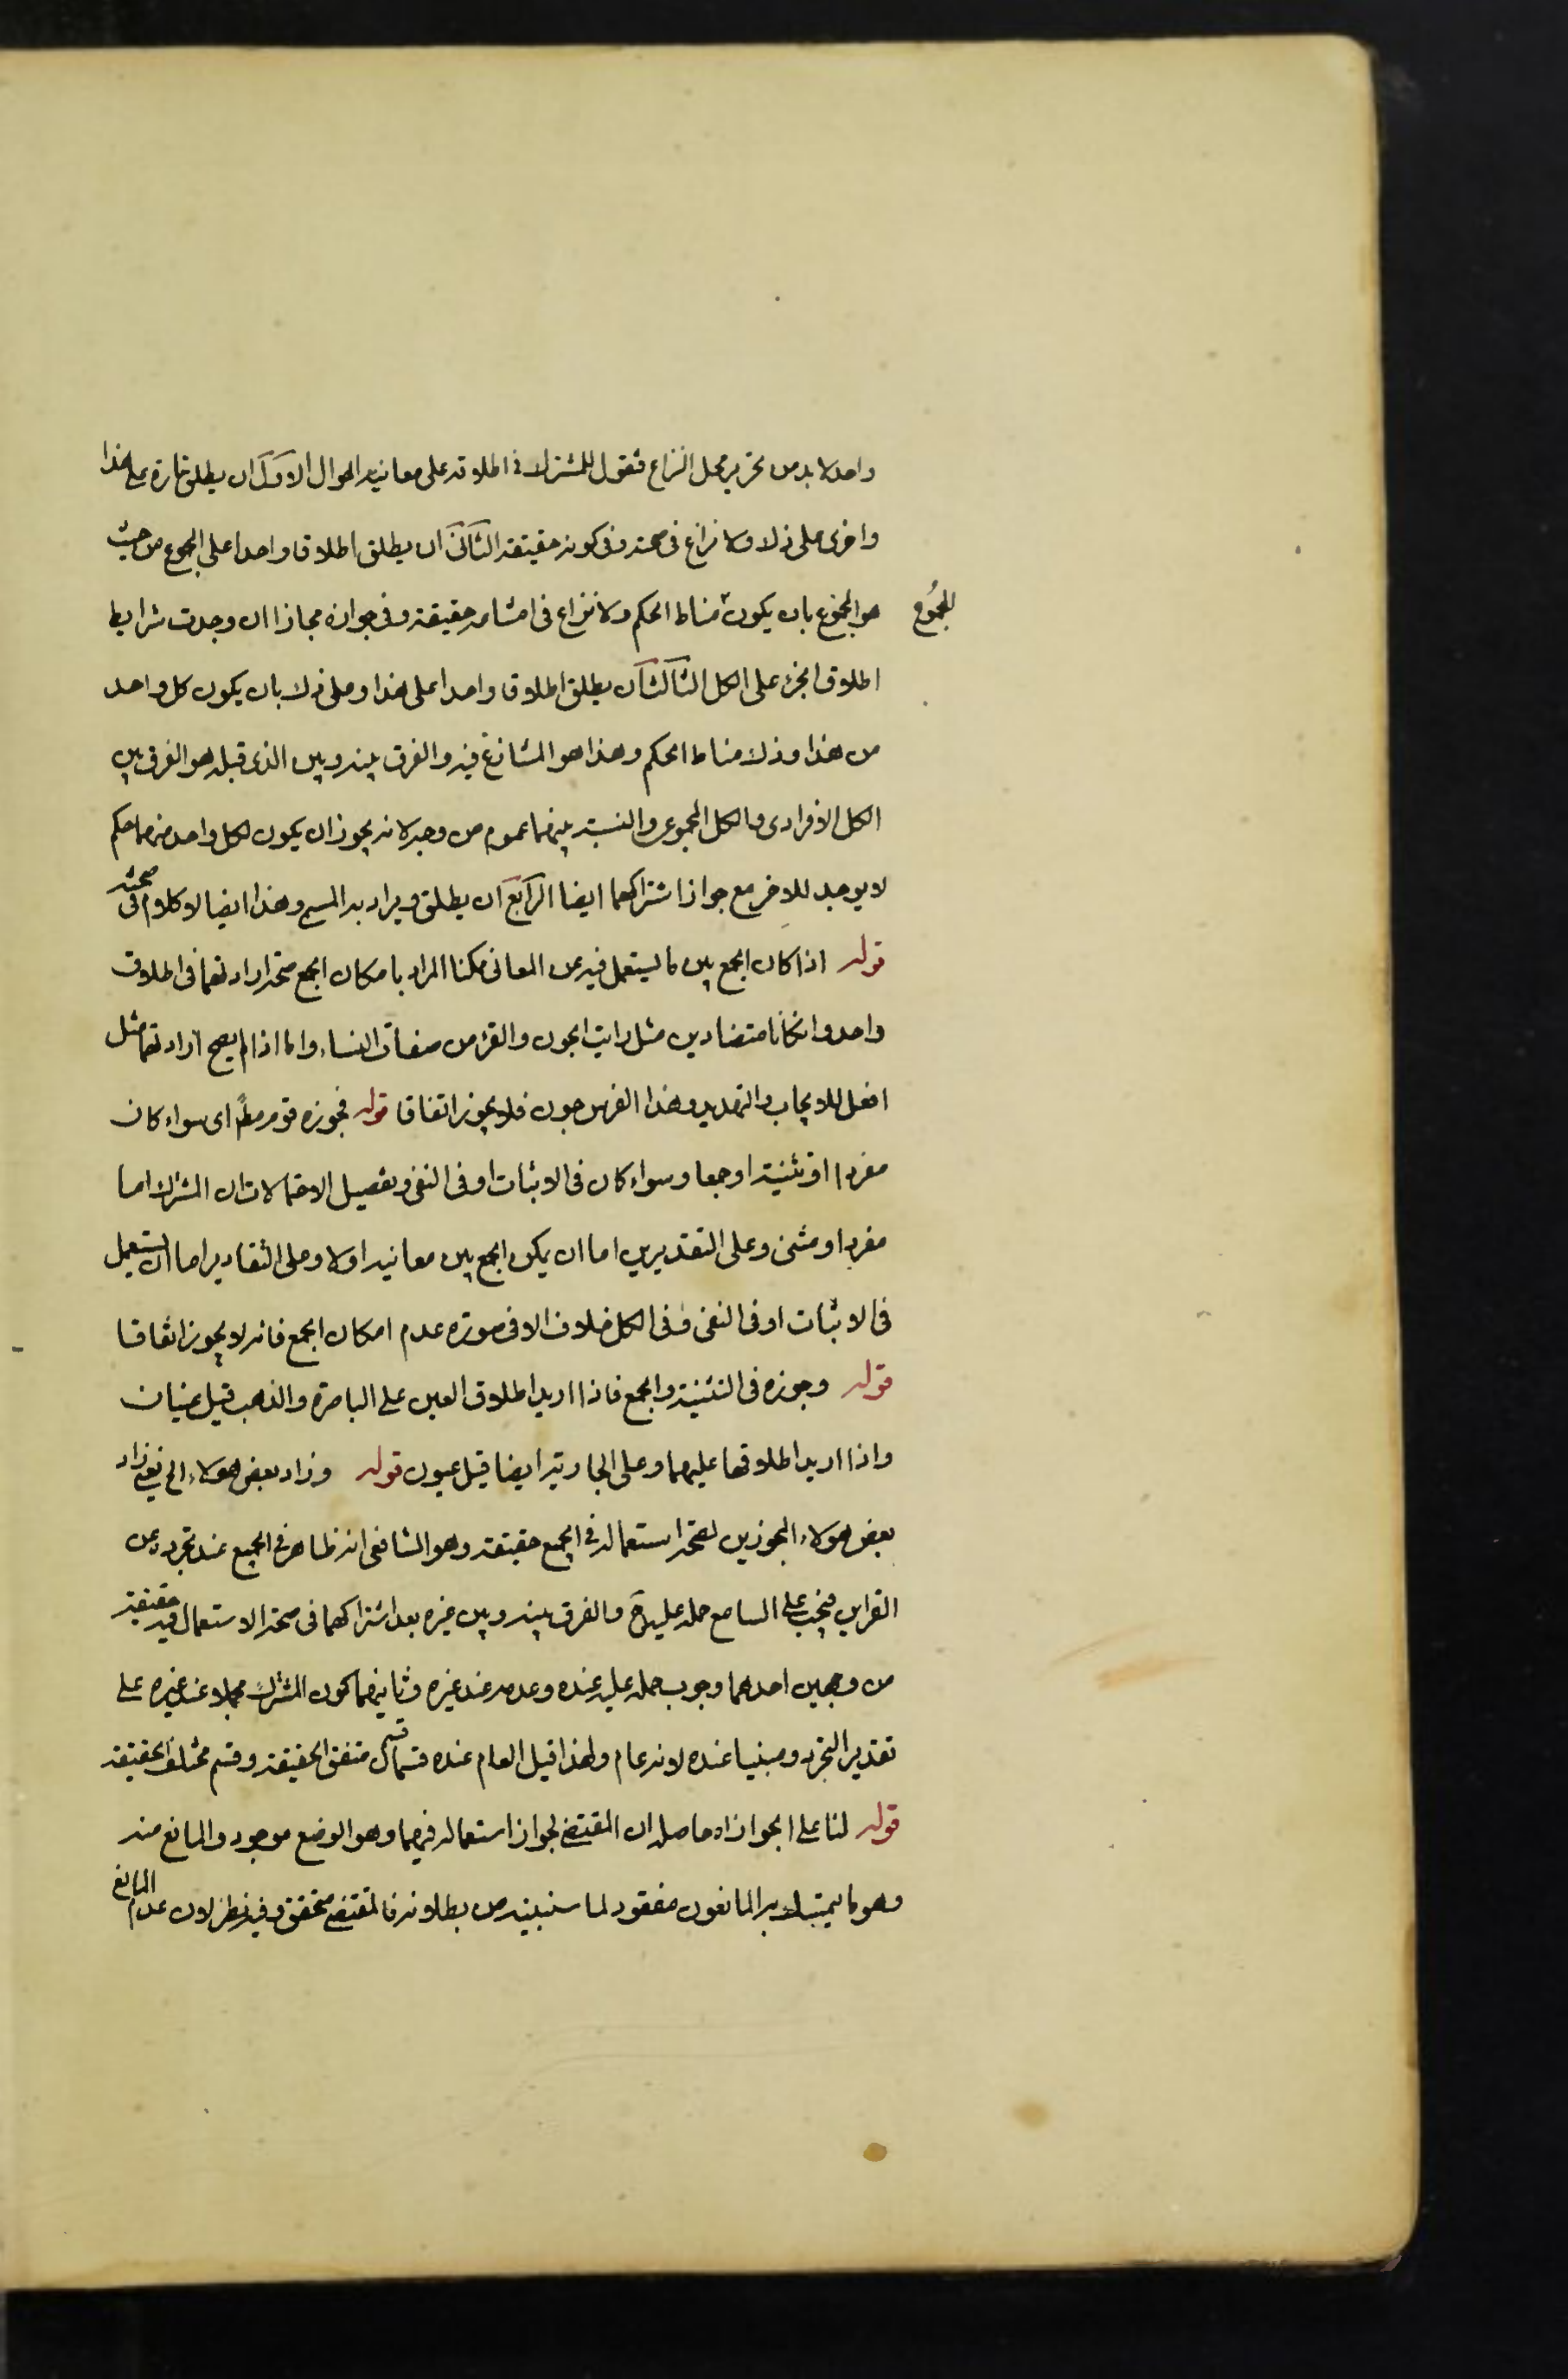 واحد لا بد من تحرير محل النزاع فنقول للمشترك فى اطلاقه على معانيه احوال الاول ان يطلق تارة على هذا
واخرى على ذلك ولا نزاع فى صحته وفى كونه حقيقة الثانى ان يطلق اطلاقا واحدا على المجموع من حيث
المجموع
هو المجموع بان يكون مناط الحكم ولا نزاع فى امتناعه حقيقة وفى جوازه مجازا ان وجدت شرايط
اطلاق الجزء على الكل الثالث ان يطلق اطلاقا واحدا على هذا وعلى ذلك بان يكون كل واحد
من هذا وذلك مناط الحكم وهذا هو المتنازع فيه والفرق بينه وبين الذى قبله هو الفرق بين
الكل الافرادى والكل المجموعى والنسبة بينهما عموم من وجه لانه يجوز ان يكون لكل واحد منهما حكم
لا يوجد للاخر مع جواز اشتراكهما ايضا الرابع ان يطلق ويراد به المسمى وهذا ايضا لا كلام فى صحته
قوله اذا كان الجمع بين ما يستعمل فيه من المعانى ممكنا المراد بامكان الجمع صحة ارادتهما فى اطلاق
واحد وان كانا متضادين مثل رايت الجون والقرء من صفات النساء واما اذا لم يصح ارادتهما مثل
افعل للايجاب والتهديد وهذا الفرس جون فلا يجوز اتفاقا قوله فجوزه قوم مطلقا اى سواء كان
مفردا او تثنية او جمعا وسواء كان فى الاثبات او فى النفى وتفصيل الاحتمالات ان المشترك اما
مفرد او مثنى وعلى التقديرين اما ان يمكن الجمع بين معانيه اولا وعلى التقادير اما ان يستعمل
فى الاثبات او فى النفى وفى الكل خلاف الا فى صورة عدم امكان الجمع فانه لا يجوز اتفاقا
قوله وجوزه فى التثنية والجمع فاذا اريد اطلاق العين على الباصرة والذهب قيل عينان
واذا اريد اطلاقها عليهما وعلى الجارية ايضا قيل عيون قوله وزاد بعض هولاء الخ يعنى زاد
بعض هولاء المجوزين لصحة استعماله فى الجميع حقيقة وهو الشافعى انه ظاهر فى الجميع عند تجرده عن
القراين فيجب على السامع حمله عليه ح والفرق بينه وبين غيره بعد اشتراكهما فى صحة الاستعمال فيه حقيقة
من وجهين احدهما وجوب حمله عليه عنده وعدمه عند غيره وثانيهما كون المشترك مجملا عند غيره على
تقدير التجرد ومبينا عنده لانه عام ولهذا قيل العام عنده قسمان قسم متفق الحقيقة وقسم مختلف الحقيقة
قوله لنا على الجواز اه حاصله ان المقتضى لجواز استعماله فيهما وهو الوضع موجود والمانع منه
وهو ما يتمسك به المانعون مفقود لما سنبينه من بطلانه فالمقتضى متحقق وفيه نظر لان عدم المانع